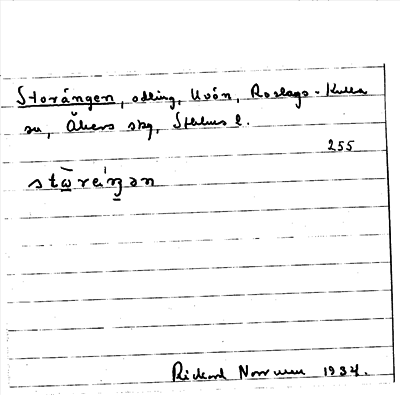 Storängen, odling, Uvön, Roslags-Kulla
sn, Åkers skg, Sthlms l.
255
stὼ̱reŋ̱ən
Rickard Norrman 1934.